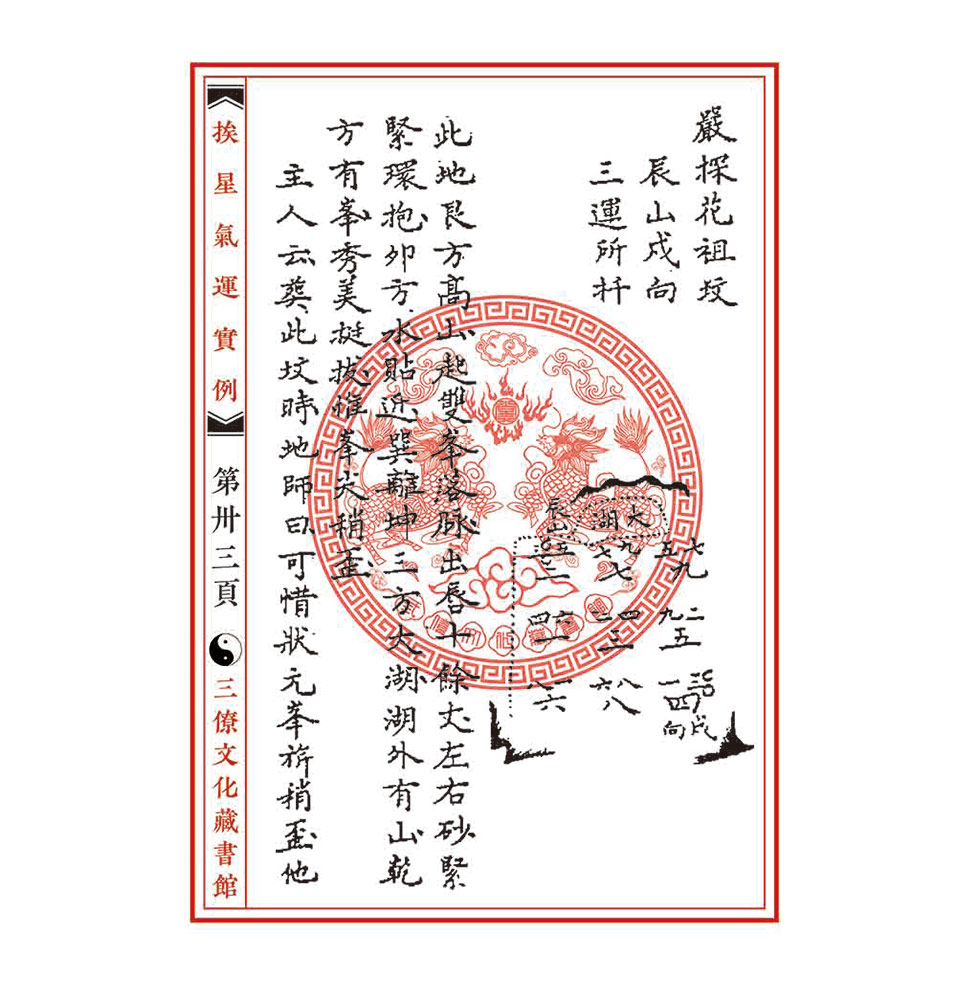 嚴探花祖坟
辰山戍向
三運所扦
此地艮方高山起雙峯落脉出唇十餘丈左右砂緊
緊環抱卯方水貼近巽離坤三方大湖湖外有山乾
方有峯秀美挺拔惟峯尖稍歪
主人云葬此坟時地師曰可惜狀元峯旂稍歪他
大湖
辰山
五七
九
九七
七
二九
五
四二
三
六四
二
三戍
一四
向
八六
八
一八
六
挨星氣運實例
第卅三頁
三僚文化藏書館